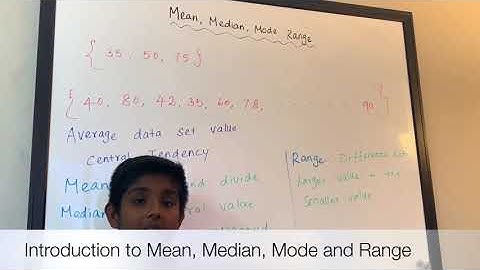 Mean, Median, Mode Range
{ 35, 50, 75 }
{ 40, 80, 42, 35, 60, 78, - - - - - - 90 }
Average data set value
Central Tendency
Mean nd divide
Median ral value
Range Difference bet
larger value + the
smaller value
Introduction to Mean, Median, Mode and Range